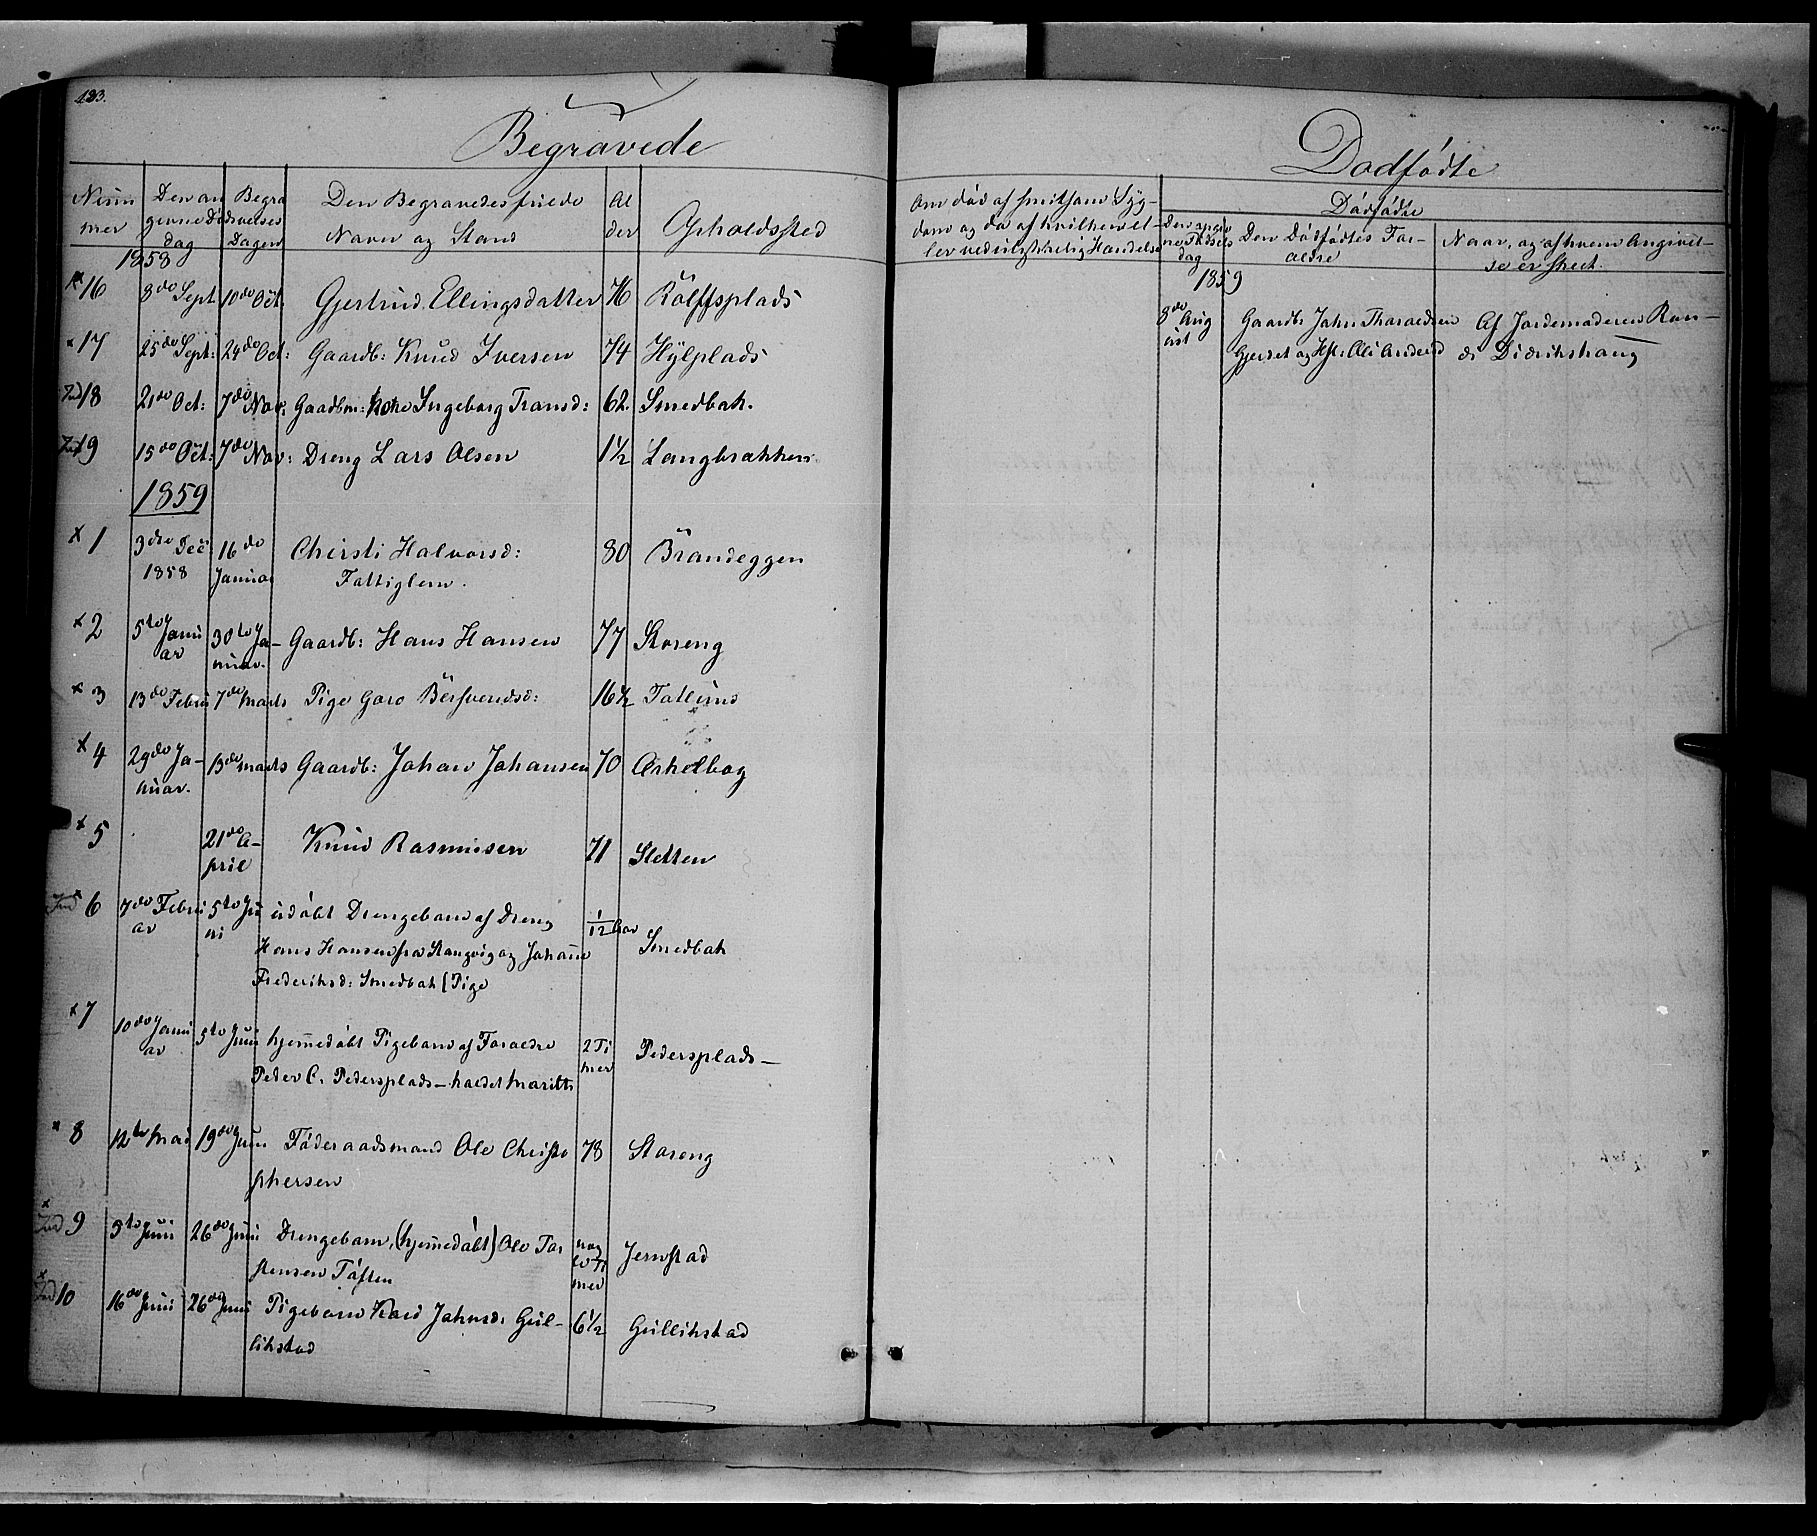 123.
Begravede
Nummer
Den angivne Dødsdag
Begravelses Dagen
Den Begravedes fulde Navn og Stand
Alder
Opholdssted
1858
16 8de Sept 10de Oct. Gjertrud Ellingsdatter 76 Rolffsplads
17 25de Sept: 24de Oct: Gaardb: Knud Iversen 74 Hylplads
Ind 18 21de Oct: 7de Nov: Gaardbm: Kone Ingeborg Transd: 62. Smedbak.
Ind 19 15de Oct: 7de Nov: Dreng Lars Olsen 1½ Langbrækken
1859
x 1 3die Dec 1858 16de Januar Chirsti Halvorsd: 80 Brandeggen
Fattiglem.
x 2 5te Januar 30te Januar. Gaardb: Hans Hansen 77 Storeng
x 3 13de Febru 7de Marts Pige Goro Bersvendsd: 16½ Tallund
x 4 29de Januar. 13de Marts Gaardb: Johan Johansen 70
x 5 21de April Knud Rasmusen 71 Sletten
Ind 6 7de Februar 5te Juni udøbt Drengebarn af Dreng 1/12 Aar Smedbak
Hans Hansen fra Stangvig og Johanne
Frederiksd: Smedbak (Pige
x 7 10de Januar 5te Juni hjemedøbt Pigebarn af Foraeldre 2 Timer Pedersplads
Peder C. Pedersplads
x 8 12te Mai 19de Juni Føderaadsmand Ole Christo 78 Storeng
phersen
x Ind 9 5te Juni 26de Juni Drengebarn, (hjemedøbt) Ole Tor nogle Timer Jernstad
stensen Tøften
x Ind 10 16de Juni 26de Juni Pigebarn Kari Johnsd: Gul- 6½ Gullikstad
likstad
Dødfødte
Om død af smitsom Syg-
dom og da af hvilken el-
ler ved ulykkelig Hændelse
Dødfødte
Den angivne Fødselsdag
Den Dødfødtes For-
ældre
Naar, og af hvem Angivel-
se er skeet.
1859
8de August Gaardb. John Thoraldsen Af Jordemoderen Ran-
Gjerset og Hst: Oli Andersd di Didrikshaug